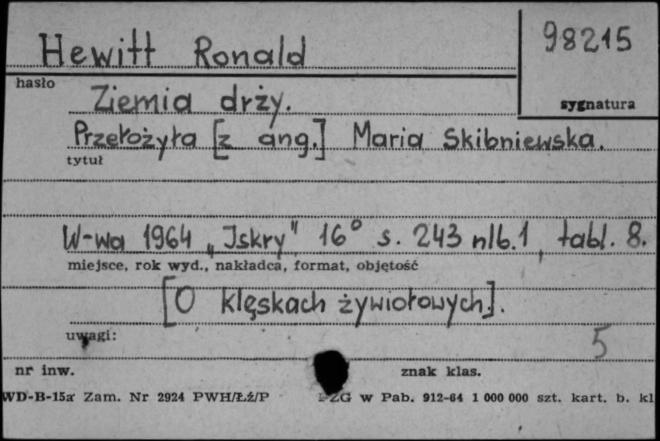 Hewitt Ronald
98215
hasło
sygnatura
Ziemia drży.
Przełożyła [z ang.] Maria Skibniewska.
tytuł
W-wa 1964 „Iskry" 16° s. 243 nlb. 1, tabl. 8.
miejsce, rok wyd., nakładca, format, objętość
[O klęskach żywiołowych].
uwagi:
5
nr inw.
znak klas.
WD-B-15a Zam. Nr 2924 PWH/Łź/P
PZG w Pab. 912-64 1 000 000 szt. kart. b. kl